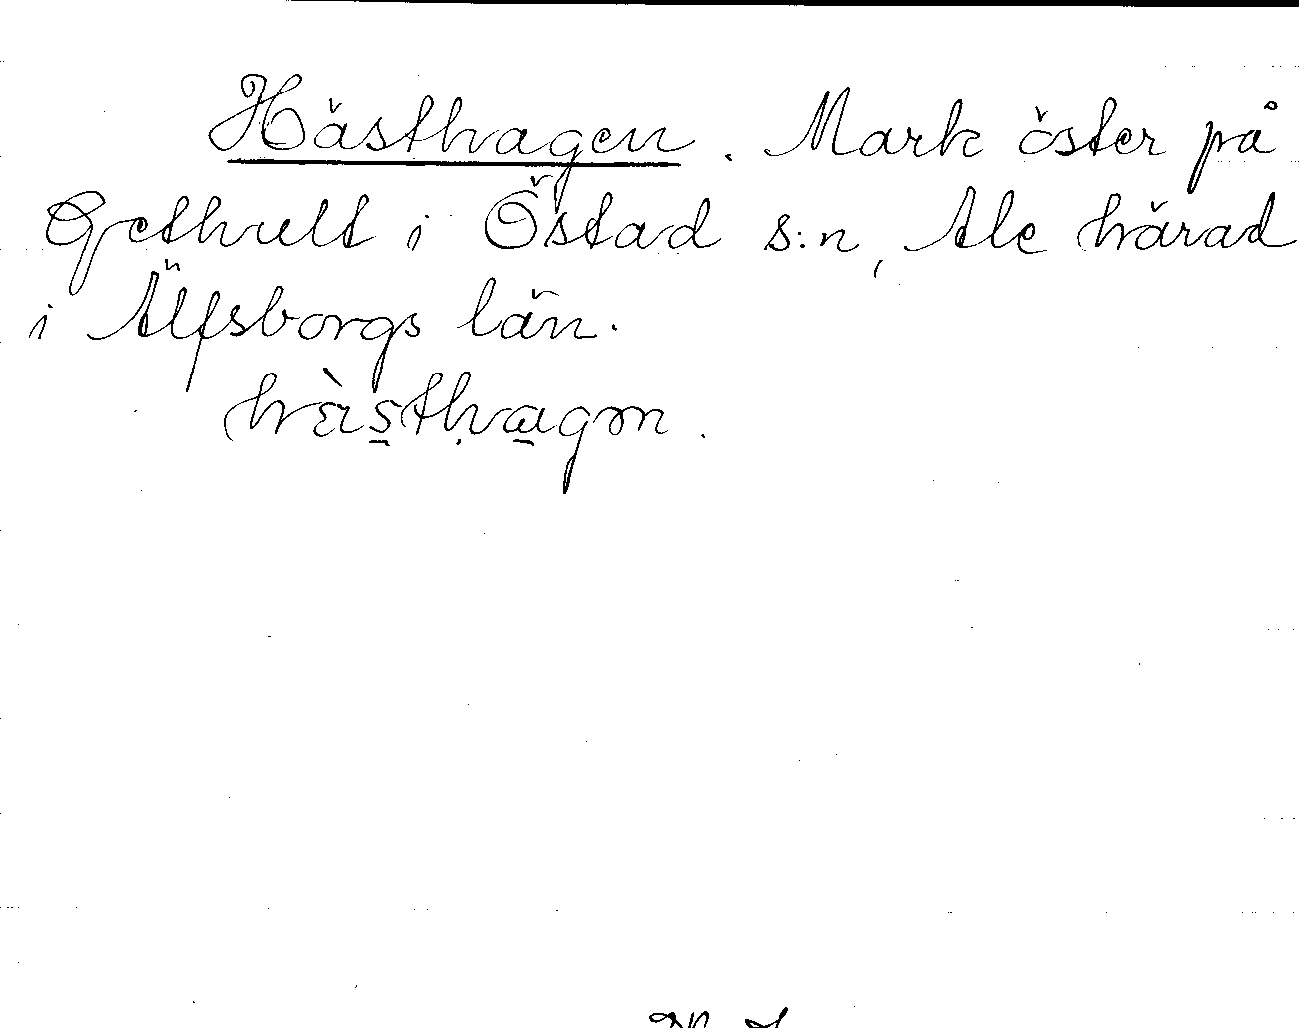 Hästhagen. Mark öster på
Gethult i Östad s:n, Ale härad
i Älfsborgs län.